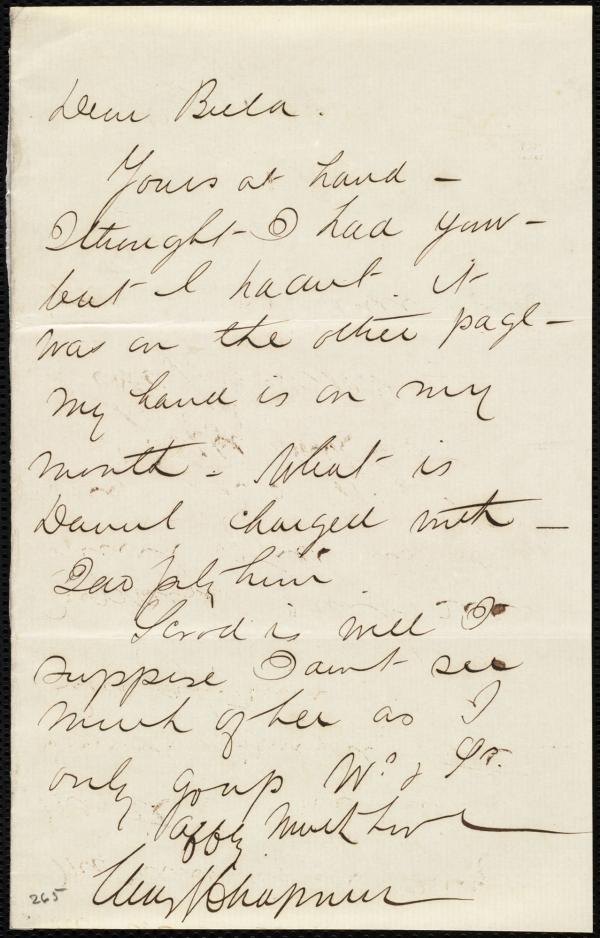 Dear Bela.
Yours at hand -
I thought - I had your -
but I hadnt. it
was on the other page -
My hand is on my
mouth - What is
Daniel charged with -
I do pity him
is well I
suppose I dont see
much of her as I
only go up W. & Sa.
Affly Much Love
Chapman
265